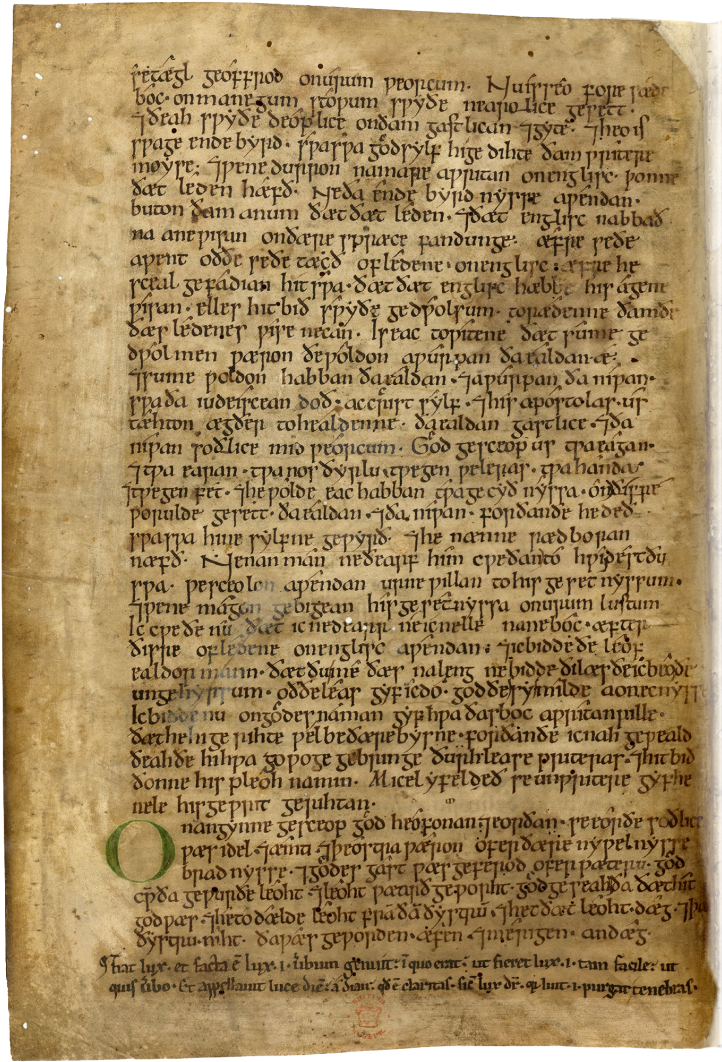 se tægl geoffrod on urum ƿeorcum. Nu is seo fore sæde
boc. on manegum stoƿum sƿyðe nearolice gesett.
⁊ðeah sƿyðe deoplice on ðam gastlican ⁊gyte. ⁊heo is
sƿa ge ende byrd. sƿa sƿa god sylf hi ge dihte ðam ƿritere
moyse; ⁊ƿe ne durron na mare aƿritan on englisc. þonne
ðæt leden hæfð. Ne ða ende byrd nysse aƿendan.
buton ðam anum ðæt ðæt leden. ⁊ðæt englisc nabbað
na ane ƿisun on ðære spræce fandunge. æfre se ðe
aƿent oððe se ðe tæcð of ledene. on englisc: æfre he
sceal gefadian hit sƿa. ðæt ðæt englisc hæbbe his agene
ƿisan. elles hit bið sƿyðe gedƿolsum. to rædenne ðam ðe
ðæs ledenes ƿise ne can. Is eac to ƿitene ðæt sume ge
dƿolmen ƿæron ðe ƿoldon aƿurpan ða ealdan æ.
⁊sume ƿoldon habban ða ealdan. ⁊aƿurpan ða niƿan.
sƿa ða iudeiscean doð. ac crist sylf. ⁊his apostolas. us
tæhton ægðer to healdenne. ða ealdan gastlice. ⁊ða
niƿan soðlice mid ƿeorcum. God gesceop us tƿa eagan.
⁊tƿa earan. tƿa nosðyrlu. tƿegen ƿeleras. tƿa handa.
⁊tƿegen fet. ⁊he ƿolde eac habban tƿa gecyðnyssa. on ðissere
ƿorulde gesett. ða ealdan. ⁊ða niƿan. forðan ðe he deð
sƿa sƿa hine sylfne geƿyrð. ⁊he nænne rædboran
næfð. Ne nan man ne ðearf him cƿeðan to hƿi dest ðu
sƿa. ƿe sceolon aƿendan urne ƿillan to his gesetnyssum.
⁊ƿe ne magon gebigean his gesetnyssa on urum lustum
Ic cƿeðe nu ðæt ic ne dearr ne ic nelle nane boc. æfter
ðisre of ledene on englisc aƿendan: ⁊ic bidde ðe leof
ealdorman. ðæt ðu me ðæs na leng ne bidde ði læs ðe ic beo ðe
ungehyrsum. oððe leas gyf ic do. god ðe sy milde a on ecnysse
Ic bidde nu on godes naman gyf hƿa ðas boc aƿritan ƿille.
ðæt he hi ge rihte ƿel be ðære bysne. forðan ðe ic nah geƿeald
ðeah ðe hi hƿa to ƿoge gebringe ðurh lease ƿriteras. ⁊hit bið
ðonne his pleoh na min. Micel yfel deð se unƿritere gyf he
nele his geƿrit gerihtan.
On angynne gesceop god heofonan ⁊eorðan. se eorðe soðlice
ƿæs idel ⁊æmti ⁊þeostra ƿæron ofer ðære nyƿelnysse
bradnysse. ⁊godes gast ƿæs geferod ofer ƿæteru. god
cƿæð ða geƿurðe leoht. ⁊leoht ƿærð geƿorht. god geseah ða ðæt hit
god ƿæs. ⁊he todælde leoht fram ðam ðystrum. ⁊het ðæt leoht. dæg. ⁊þa
ðystru. niht. ða ƿæs geƿorden. æfen. ⁊merigen. an dæg.
fiat lux. et facta ē lux. i. uerbum genuit: in quo erat. ut fieret lux. i. tam facile: ut
quis uerbo. Et appellauit lucē diē: a dian. qd̄ ē claritas. sic lux dr̄. qꝺ luit. i. purgat tenebras.